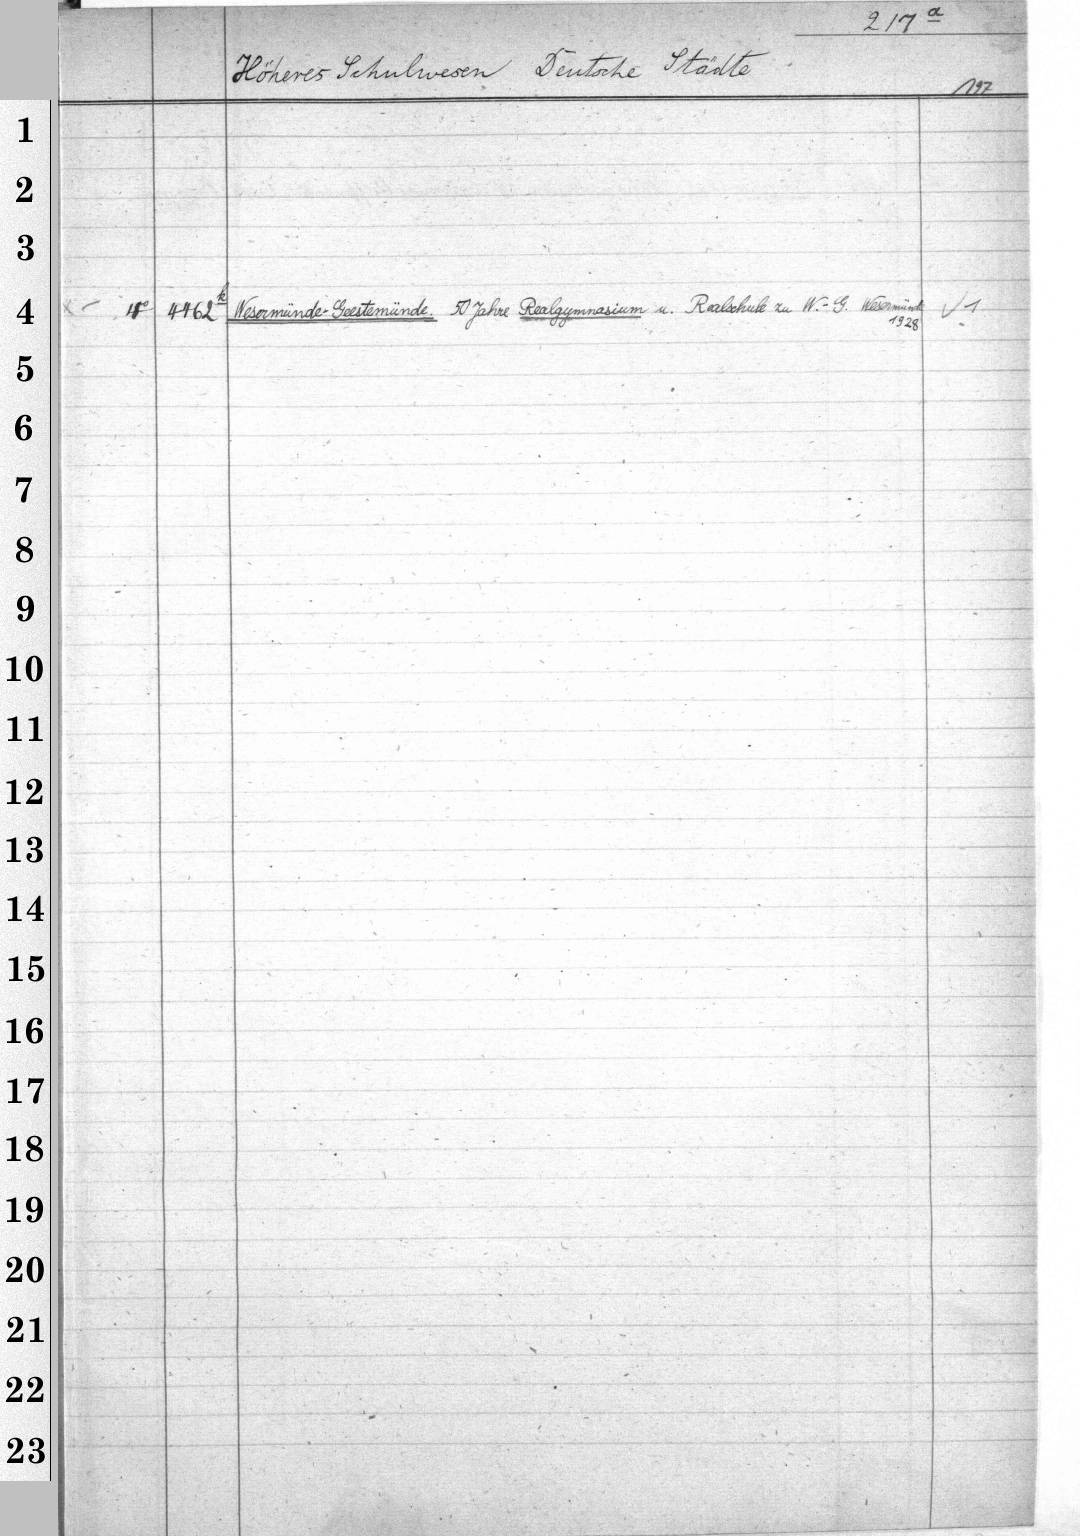 217 a
Höheres Schulwesen Deutsche Städte
197
1
2
3
4 4° 4462 k Wesermünde-Geestemünde. 50 Jahre Realgymnasium u. Realschule zu W.-G. Wesermünde 1928 √ 1
5
6
7
8
9
10
11
12
13
14
15
16
17
18
19
20
21
22
23